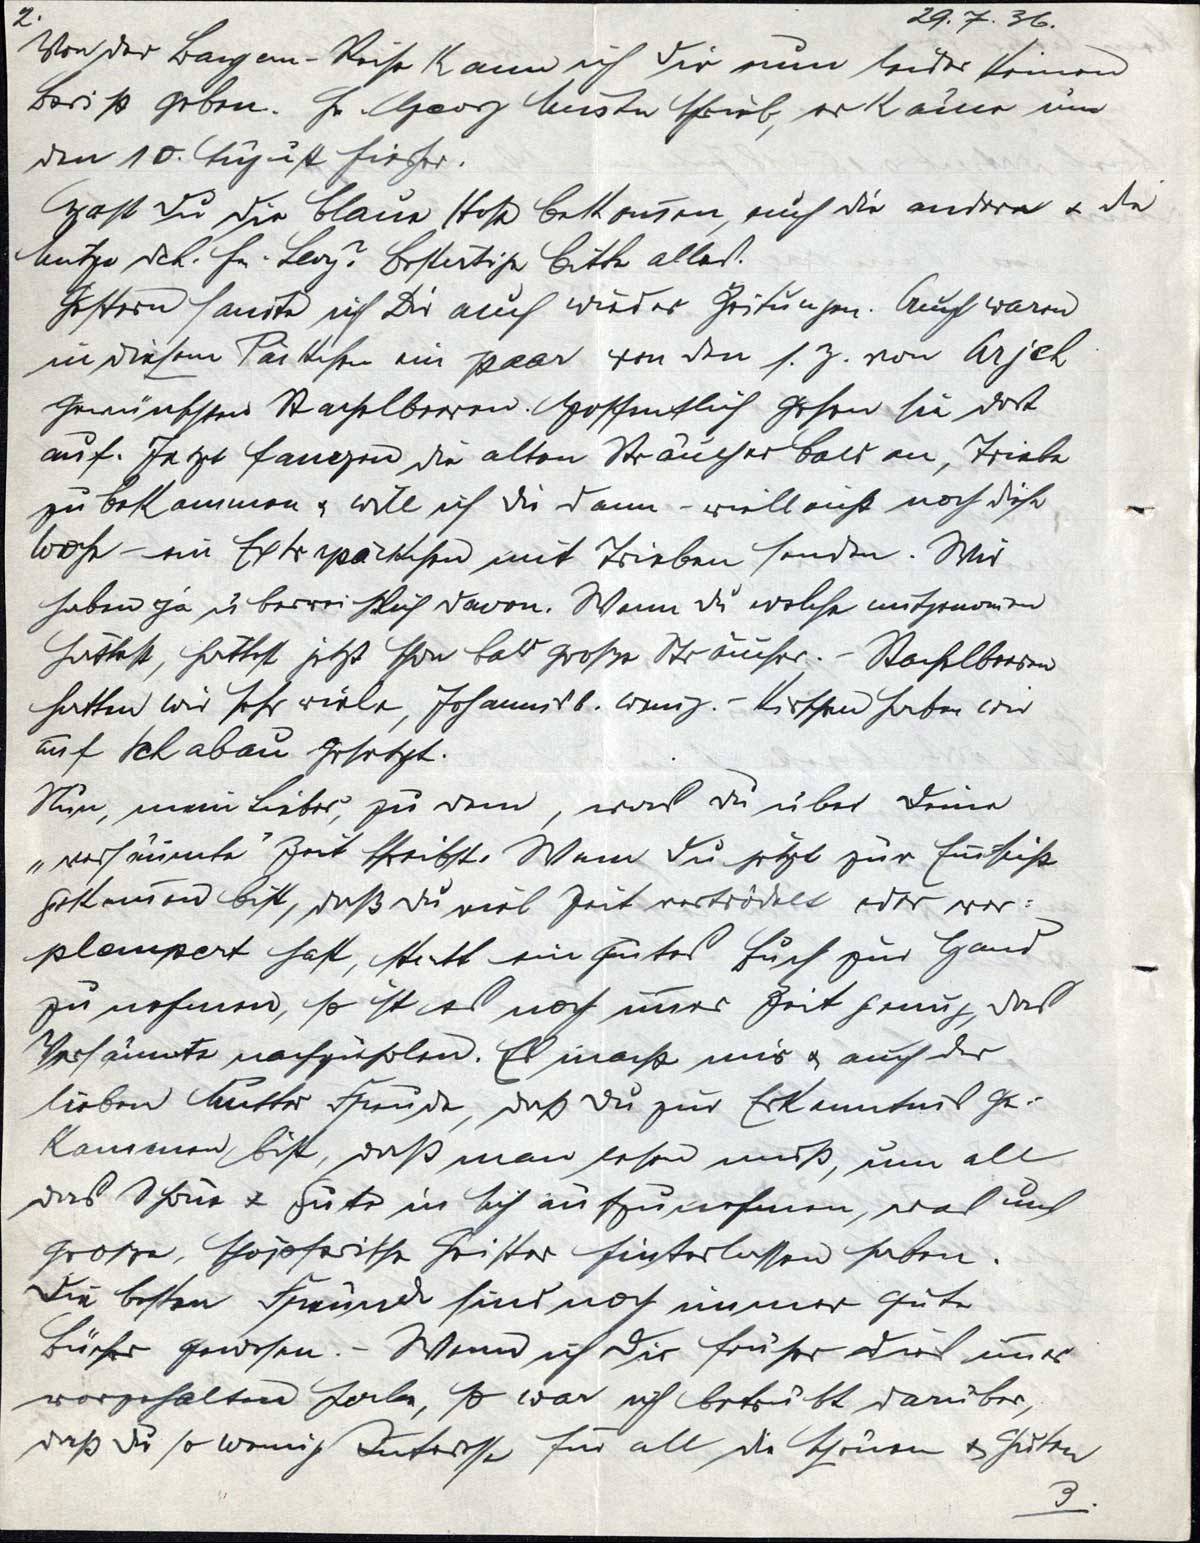 2.
29.7.36.
Von der Reise kann ich Dir nun leider keinen
Bericht geben. Georg schrieb, er käme um
den 10. August hierher.
Hast Du die blaue Hose bekommen, auch die andere & die
Mütze dch. Fr. Levy? Bestätige bitte alles.
Gestern sandte ich Dir auch wieder Zeitungen. Auch waren
in diesem Päckchen ein paar von den s. Z. von Arjeh
gewünschten Stachelbeeren. Hoffentlich gehen sie dort
auf. Jetzt fangen die alten Sträucher bald an, Triebe
zu bekommen & will ich Dir dann - vielleicht noch diese
Woche - ein Extrapäckchen mit Trieben senden. Wir
haben ja überreichlich davon. Wenn Du welche mitgenomen
hättest, hättest jetzt schon bald große Sträucher. - Stachelbeeren
hatten wir sehr viele, Johannisb. wenig. - Kirschen haben wir
auf gesetzt.
Nun, mein Lieber, zu dem, was Du über Deine
„versäumte" Zeit schreibst. Wenn Du jetzt zur Einsicht
gekomen bist, daß Du viel Zeit vertrödelt oder ver=
plempert hast, statt ein gutes Buch zur Hand
zu nehmen, so ist es noch imer Zeit genug, das
Versäumte nachzuholen. Es macht mir & auch der
lieben Mutter Freude, daß Du zur Erkenntnis ge-
kommen bist, daß man lesen muß, um all
das Schöne & Gute in sich aufzunehmen, was uns
große, schöpferische Geister hinterlassen haben.
Die besten Freunde sind noch immer gute
Bücher gewesen. - Wenn ich Dir früher dies imer
vorgehalten habe, so war ich betrübt darüber,
daß Du so wenig Interesse für all die Schönen & Guten
3.